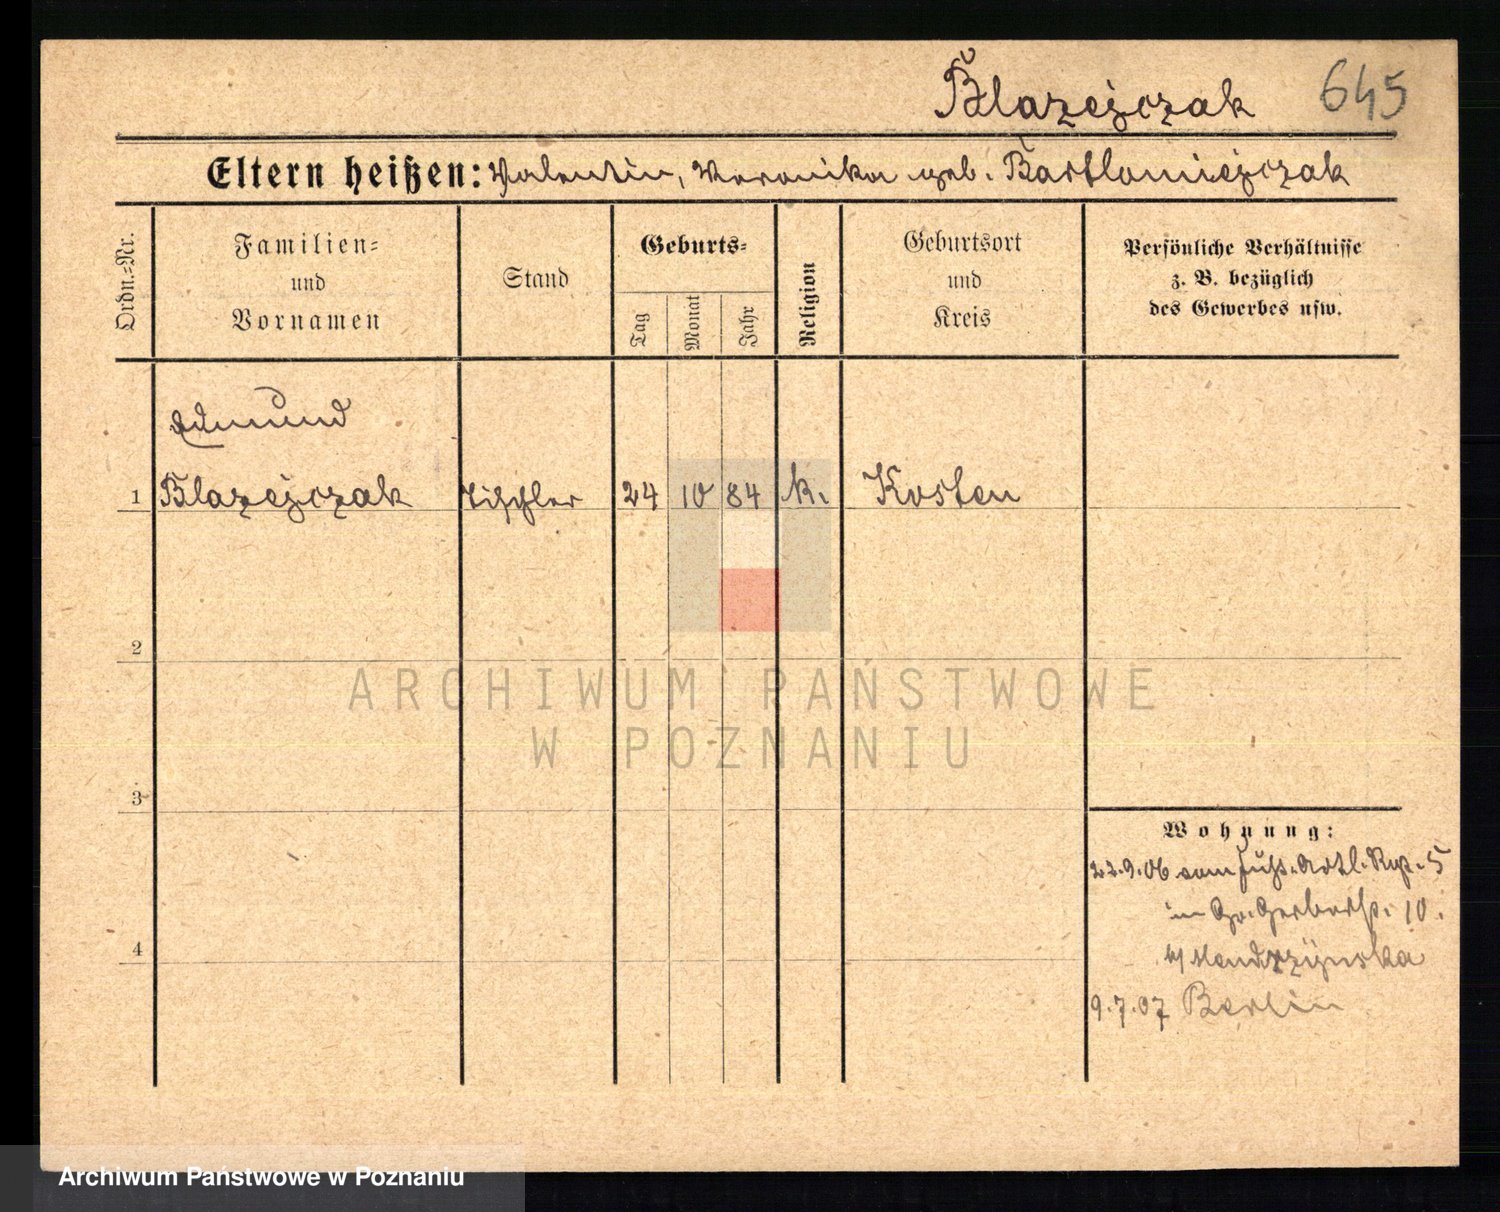 Blazejczak 645
Eltern heißen: Valentin, Veronika geb. Bartlomiejczak
Ordn.-Nr.
Familien-
und
Vornamen
Stand
Geburts-
Tag
Monat
Jahr
Religion
Geburtsort
und
Kreis
Persönliche Verhältnisse
z. B. bezüglich
des Gewerbes usw.
Edmund
1 Blazejczak Tischler 24 10 84 k. Kosten
2
ARCHIWUM PAŃSTWOWE
W POZNANIU
3
Wohnung:
22.9.06 vom Fußs. Artl. Rgt. 5
in Gr. Gerberstr. 10.
b/ Mendrzynska
4
9.7.07 Berlin
Archiwum Państwowe w Poznaniu